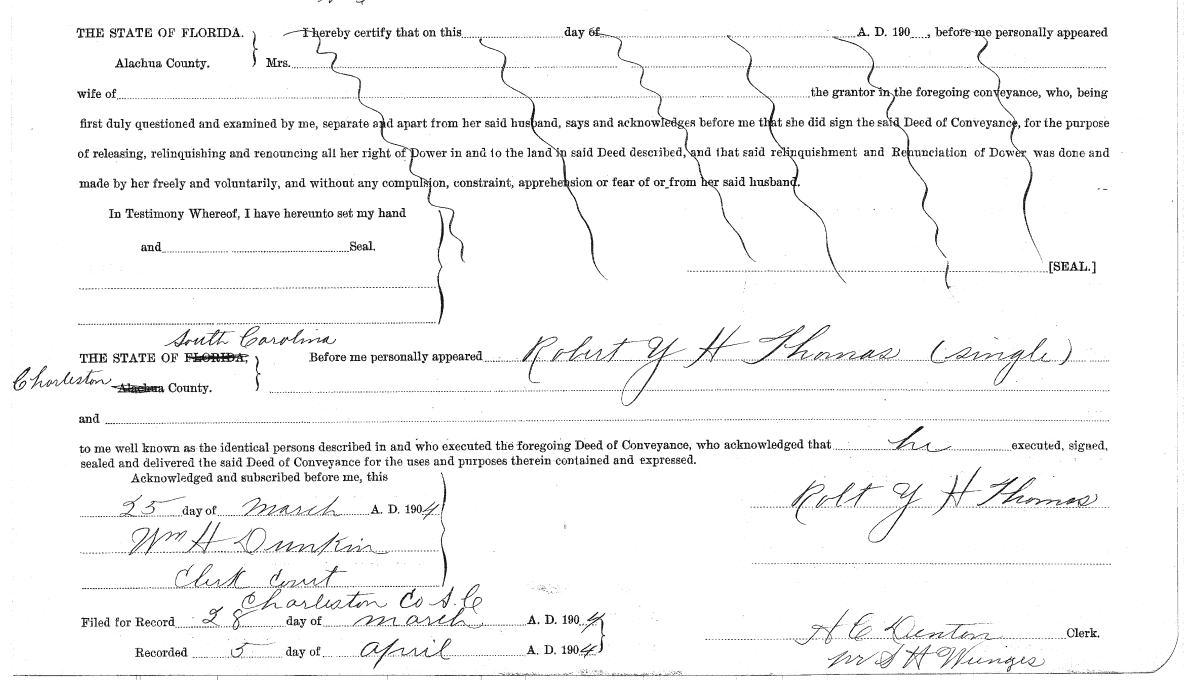 THE STATE OF FLORIDA. I hereby certify that on this day of A. D. 190 , before me personally appeared
Alachua County. Mrs.
wife of the grantor in the foregoing conveyance, who, being
first duly questioned and examined by me, separate and apart from her said husband, says and acknowledges before me that she did sign the said Deed of Conveyance, for the purpose
of releasing, relinquishing and renouncing all her right of Dower in and to the land in said Deed described, and that said relinquishment and Renunciation of Dower was done and
made by her freely and voluntarily, and without any compulsion, constraint, apprehension or fear of or from her said husband.
In Testimony Whereof, I have hereunto set my hand
and Seal.
[SEAL.]
South Carolina
THE STATE OF FLORIDA, Before me personally appeared Robert Y H Thomas (single)
Charleston Alachua County.
and
to me well known as the identical persons described in and who executed the foregoing Deed of Conveyance, who acknowledged that he executed, signed,
sealed and delivered the said Deed of Conveyance for the uses and purposes therein contained and expressed.
Acknowledged and subscribed before me, this
25 day of March A. D. 1904 Robt Y H Thomas
Wm H Dunkin
Clerk Court
Charleston Co S.C
Filed for Record 28 day of March A. D. 1904
H C Denton Clerk.
Recorded 5 day of April A. D. 1904
S H Wienges